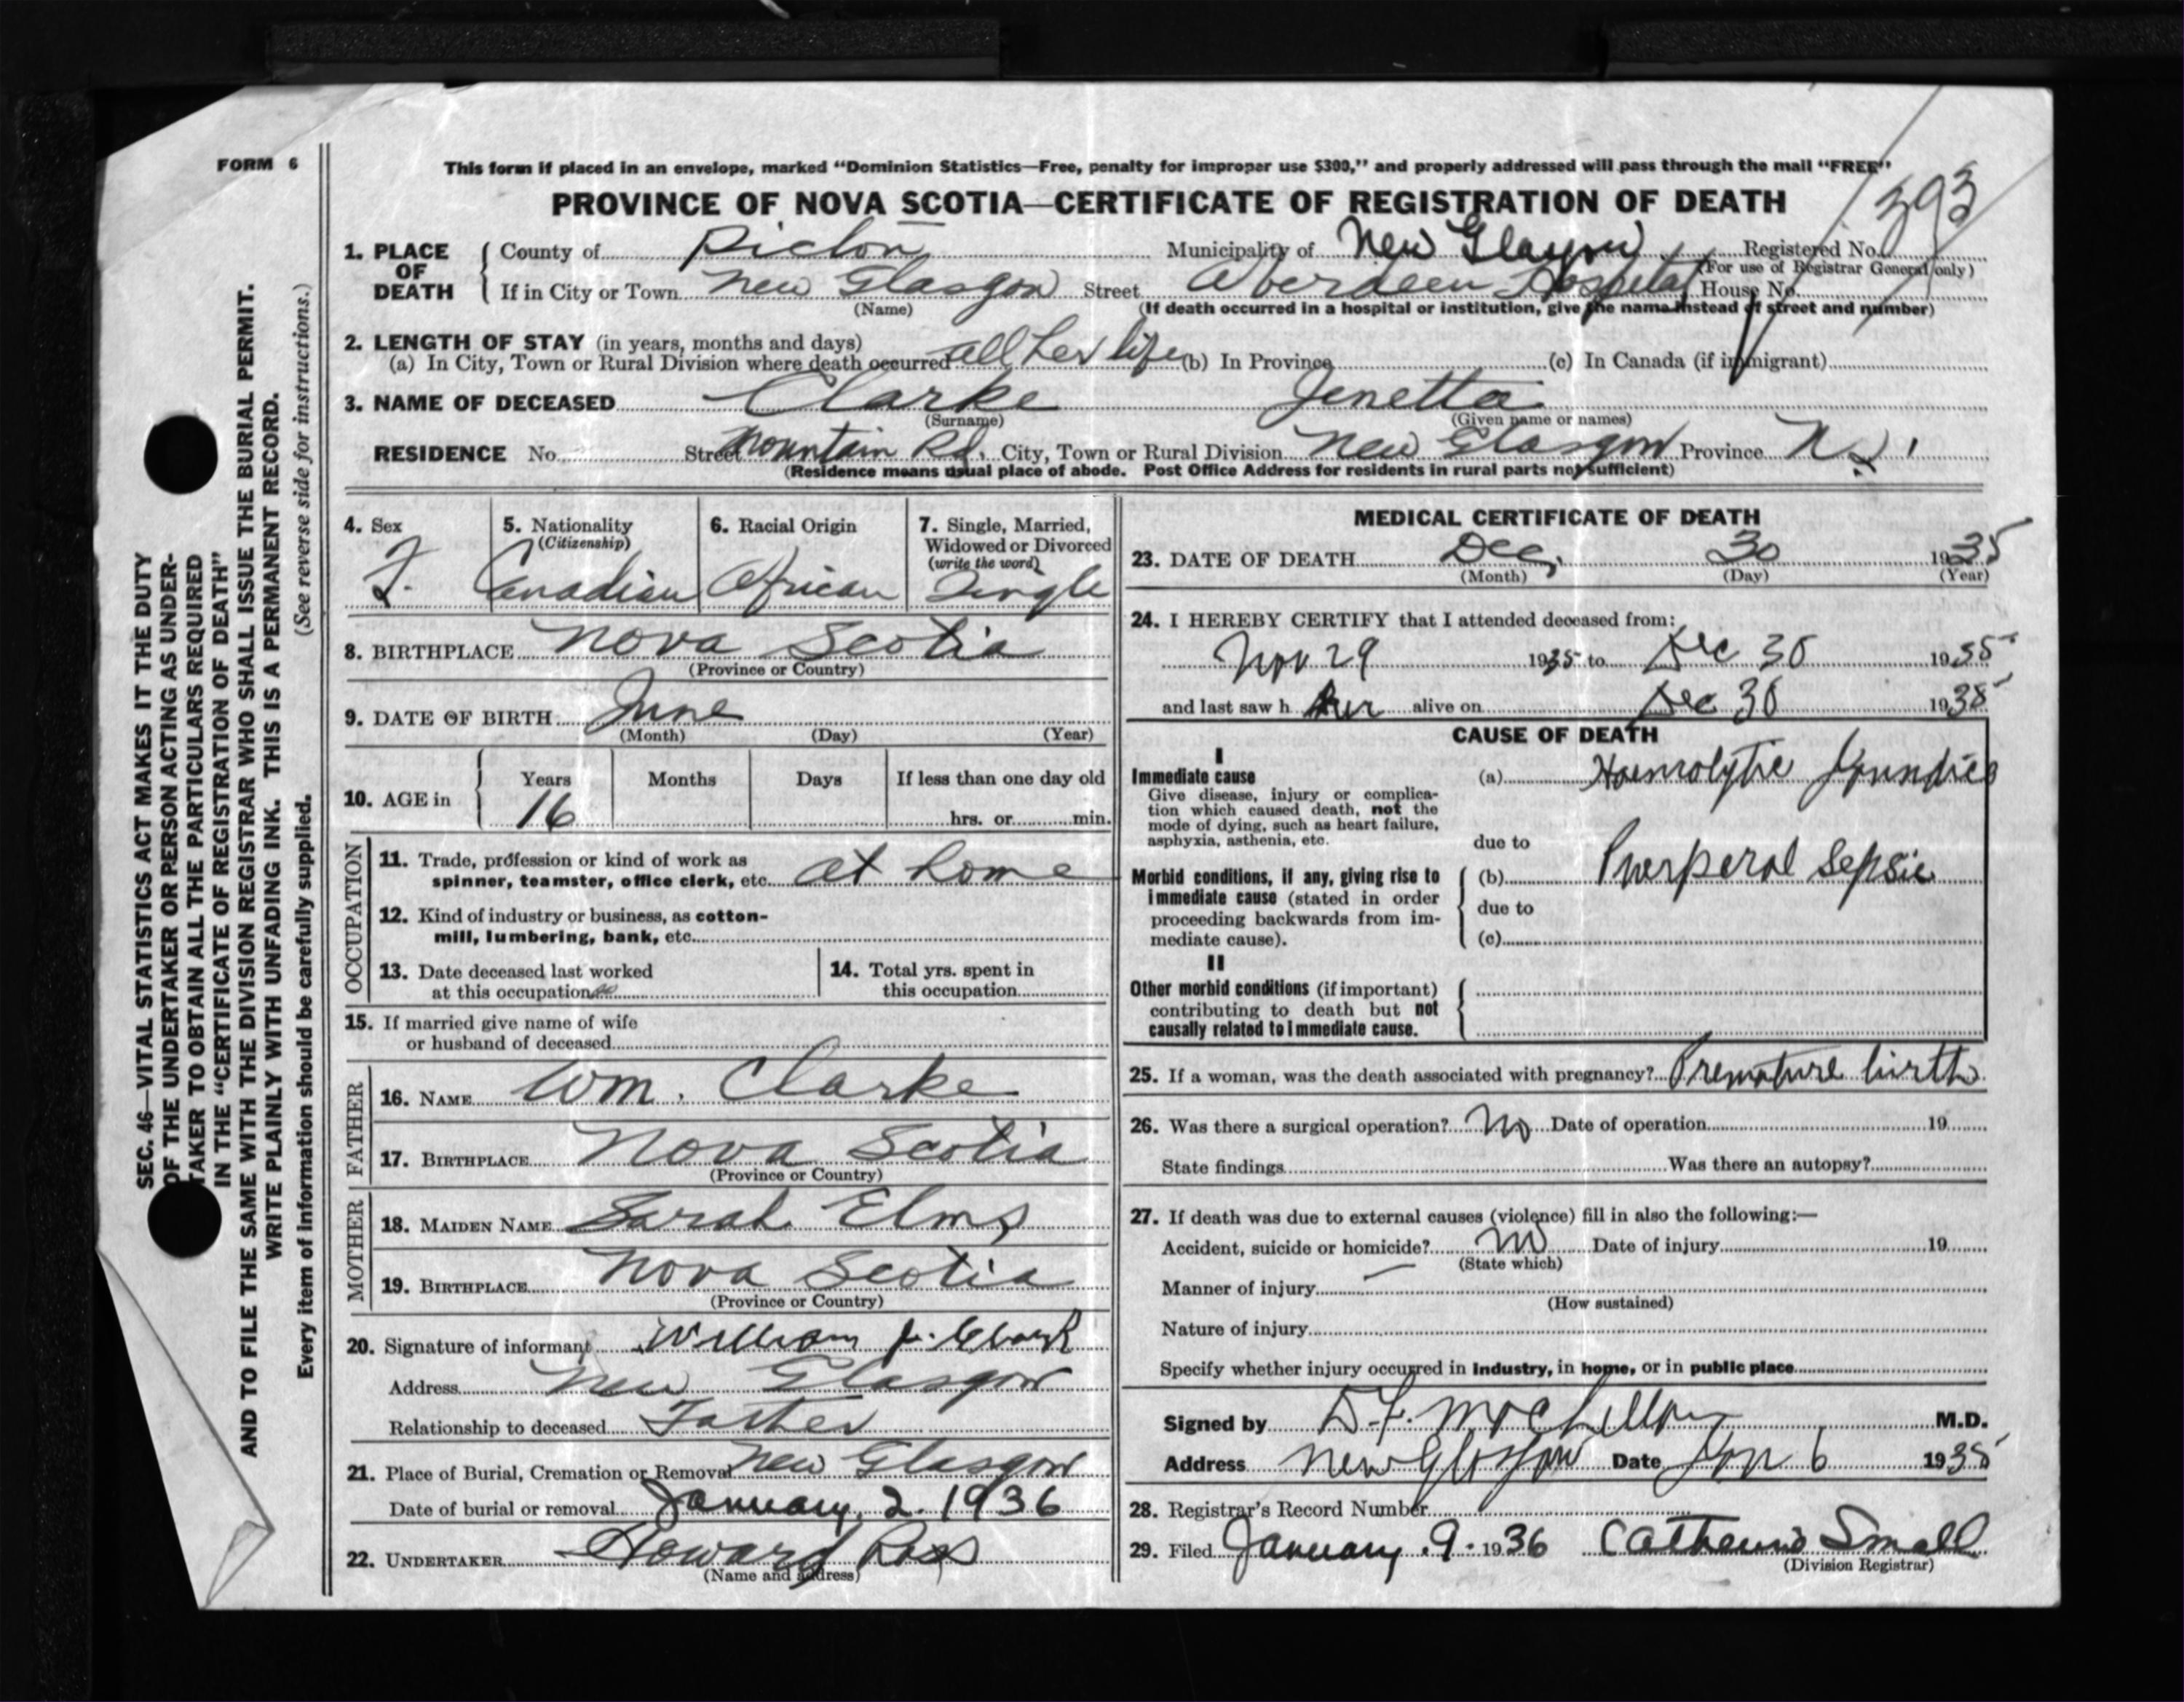 FORM 6
This form if placed in an envelope, marked “Dominion Statistics—Free, penalty for improper use $300,” and properly addressed will pass through the mail “FREE”
PROVINCE OF NOVA SCOTIA—CERTIFICATE OF REGISTRATION OF DEATH
393
1. PLACE OF DEATH County of Pictou Municipality of New Glasgow Registered No.
(For use of Registrar General only)
If in City or Town New Glasgow Street Aberdeen Hospital House No.
(Name) (If death occurred in a hospital or institution, give the name instead of street and number)
2. LENGTH OF STAY (in years, months and days)
(a) In City, Town or Rural Division where death occurred all her life (b) In Province (c) In Canada (if immigrant)
3. NAME OF DECEASED Clarke Jenetta
(Surname) (Given name or names)
RESIDENCE No. Street Mountain Rd. City, Town or Rural Division New Glasgow Province N.S.
(Residence means usual place of abode. Post Office Address for residents in rural parts not sufficient)
4. Sex 5. Nationality 6. Racial Origin 7. Single, Married,
(Citizenship) Widowed or Divorced
(write the word)
F. Canadian African Single
8. BIRTHPLACE Nova Scotia
(Province or Country)
9. DATE OF BIRTH June
(Month) (Day) (Year)
10. AGE in Years Months Days If less than one day old
16 hrs. or min.
OCCUPATION
11. Trade, profession or kind of work as
spinner, teamster, office clerk, etc. at home
12. Kind of industry or business, as cotton-
mill, lumbering, bank, etc.
13. Date deceased last worked
at this occupation
14. Total yrs. spent in
this occupation
15. If married give name of wife
or husband of deceased
FATHER
16. NAME Wm. Clarke
17. BIRTHPLACE Nova Scotia
(Province or Country)
MOTHER
18. MAIDEN NAME Sarah Elms
19. BIRTHPLACE Nova Scotia
(Province or Country)
20. Signature of informant William J. Clark
Address New Glasgow
Relationship to deceased Father
21. Place of Burial, Cremation or Removal New Glasgow
Date of burial or removal January 2. 1936
22. UNDERTAKER Howard Ross
(Name and address)
MEDICAL CERTIFICATE OF DEATH
23. DATE OF DEATH Dec. 30 1935
(Month) (Day) (Year)
24. I HEREBY CERTIFY that I attended deceased from:
Nov 29 1935 to Dec 30 1935
and last saw h her alive on Dec 30 1935
CAUSE OF DEATH
I
Immediate cause (a) Haemolytic Jaundice
Give disease, injury or complica-
tion which caused death, not the
mode of dying, such as heart failure,
asphyxia, asthenia, etc. due to
Morbid conditions, if any, giving rise to (b) Puerperal Sepsis
immediate cause (stated in order due to
proceeding backwards from im-
mediate cause). (c)
II
Other morbid conditions (if important)
contributing to death but not
causally related to immediate cause.
25. If a woman, was the death associated with pregnancy? Premature birth
26. Was there a surgical operation? No Date of operation 19
State findings Was there an autopsy?
27. If death was due to external causes (violence) fill in also the following:—
Accident, suicide or homicide? No Date of injury 19
(State which)
Manner of injury —
(How sustained)
Nature of injury
Specify whether injury occurred in industry, in home, or in public place
Signed by M.D.
Address New Glasgow Date Jan 6 1935
28. Registrar’s Record Number
29. Filed January . 9 . 1936 Small
(Division Registrar)
SEC. 46—VITAL STATISTICS ACT MAKES IT THE DUTY
OF THE UNDERTAKER OR PERSON ACTING AS UNDER-
TAKER TO OBTAIN ALL THE PARTICULARS REQUIRED
IN THE “CERTIFICATE OF REGISTRATION OF DEATH”
AND TO FILE THE SAME WITH THE DIVISION REGISTRAR WHO SHALL ISSUE THE BURIAL PERMIT.
WRITE PLAINLY WITH UNFADING INK. THIS IS A PERMANENT RECORD.
Every item of information should be carefully supplied. (See reverse side for instrutions.)